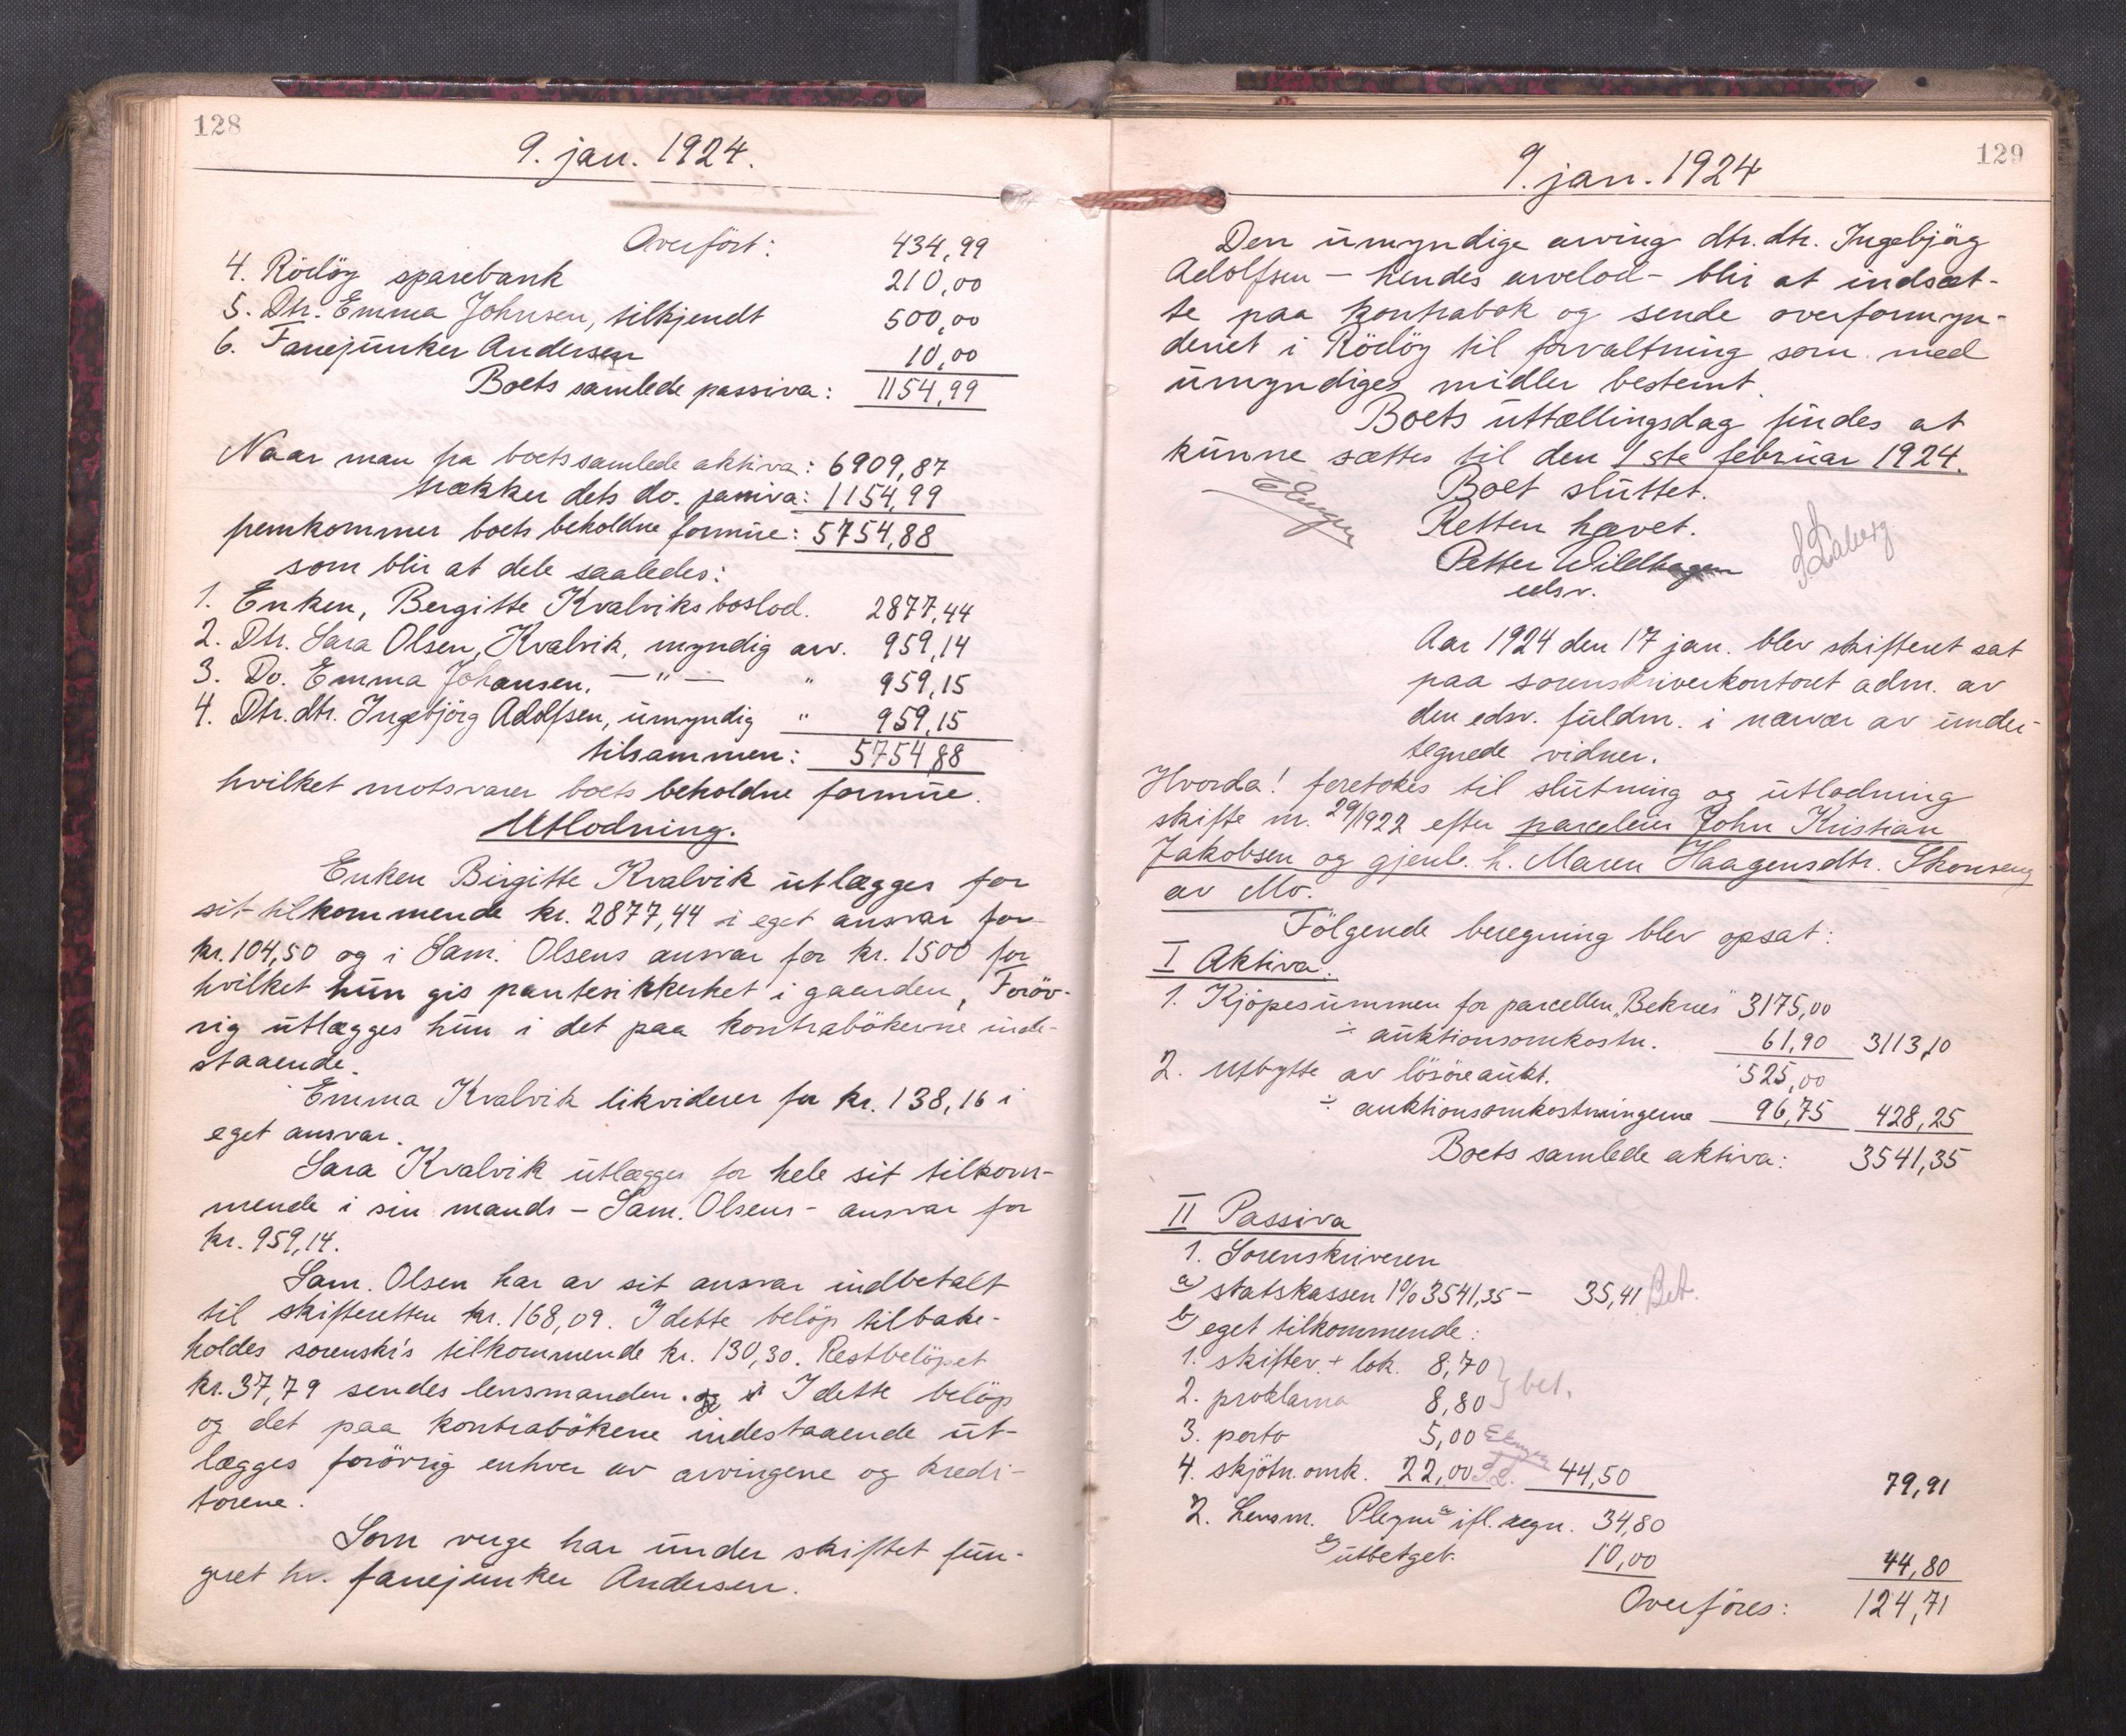 128
9. jan. 1924.
Overført: 434,99
4. Rödöy sparebank 210,00
5. Dtr. Emma Johnsen, tilkjendt 500,00
6. Fanejunker Andersen 10,00
Boets samlede passiva: 1154,99
Naar man fra boets samlede aktiva: 6909,87
trækker dets do. passiva: 1154,99
fremkommer boets beholdne formue: 5754,88
som blir at dele saaledes:
1. Enken, Bergitte Kvalviks boslod. 2877,44
2. Dtr. Sara Olsen, Kvalvik, myndig arv. 959,14
3. Do. Emma Johansen, —"— " 959,15
4. Dtr. dtr. Ingebjörg Adolfsen, umyndig " 959,15
tilsammen: 5754,88
hvilket motsvarer boets beholdne formue.
Utlodning.
Enken Birgitte Kvalvik utlægges for
sit tilkommende kr. 2877,44 i eget ansvar for
kr. 104,50 og i Sam. Olsens ansvar for kr. 1500 for
hvilket hun gis pantesikkerhet i gaarden, Foröv-
rig utlægges hun i det paa kontrabökerne inde-
staaende.
Emma Kvalvik likviderer for kr. 138,16 i
eget ansvar.
Sara Kvalvik utlægges for hele sit tilkom-
mende i sin mands – Sam. Olsens – ansvar for
kr. 959,14.
Sam. Olsen har av sit ansvar indbetalt
til skifteretten kr. 168,09. I dette belöp tilbake-
holdes sorenskr's tilkommende kr. 130,30. Restbelöpet
kr. 37,79 sendes lensmanden. I dette belöp
og det paa kontrabökene indestaaende ut-
lægges forövrig enhver av arvingene og kredi-
torene.
Som verge har under skiftet fun-
gert hr. fanejunker Andersen.
129
9. jan. 1924
Den umyndige arving dtr. dtr. Ingebjörg
Adolfsen – hendes arvelod – blir at indsæt-
te paa kontrabok og sende overformyn-
deriet i Rödöy til forvaltning som med
umyndiges midler bestemt.
Boets uttællingsdag findes at
kunne sættes til den 1ste februar 1924.
Boet sluttet.
Retten hævet.
Petter Wildhagen
edsv.
Aar 1924 den 17 jan. blev skifteret sat
paa sorenskriverkontoret adm. av
den edsv. fuldm. i nærvær av under-
tegnede vidner.
Hvorda! foretokes til slutning og utlodning
skifte nr. 29/1922 efter parceleier John Kristian
Jakobsen og gjenl. h. Maren Haagensdtr. Skonseng
av Mo.
Fölgende beregning blev opsat:
I Aktiva.
1. Kjöpesummen for parcellen „Beknes" 3175,00
÷ auktionsomkostn. 61,90 3113,10
2. Utbytte av lösöreaukt. 525,00
÷ auktionsomkostningerne 96,75 428,25
Boets samlede aktiva: 3541,35
II Passiva
1. Sorenskriveren
a) statskassen 1% 3541,35 – 35,41 Bet.
b) eget tilkommende:
1. skiftev. + lok. 8,70
2. proklama 8,80 } bet.
3. porto 5,00
4. skjötn. omk. 22,00 44,50 79,91
2. Lensm. a) ifl. regn. 34,80
b) utbetgeb. 10,00 44,80
Overföres: 124,71